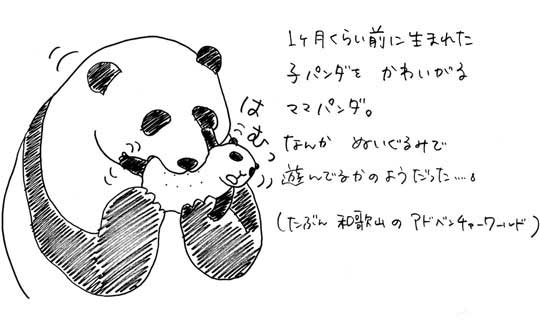 1ヶ月くらい前に生まれた
子パンダを かわいがる
ママパンダ。
なんか ぬいぐるみで
遊んでるかのようだった…。
(たぶん 和歌山の アドベンチャーワールド)
はむっ